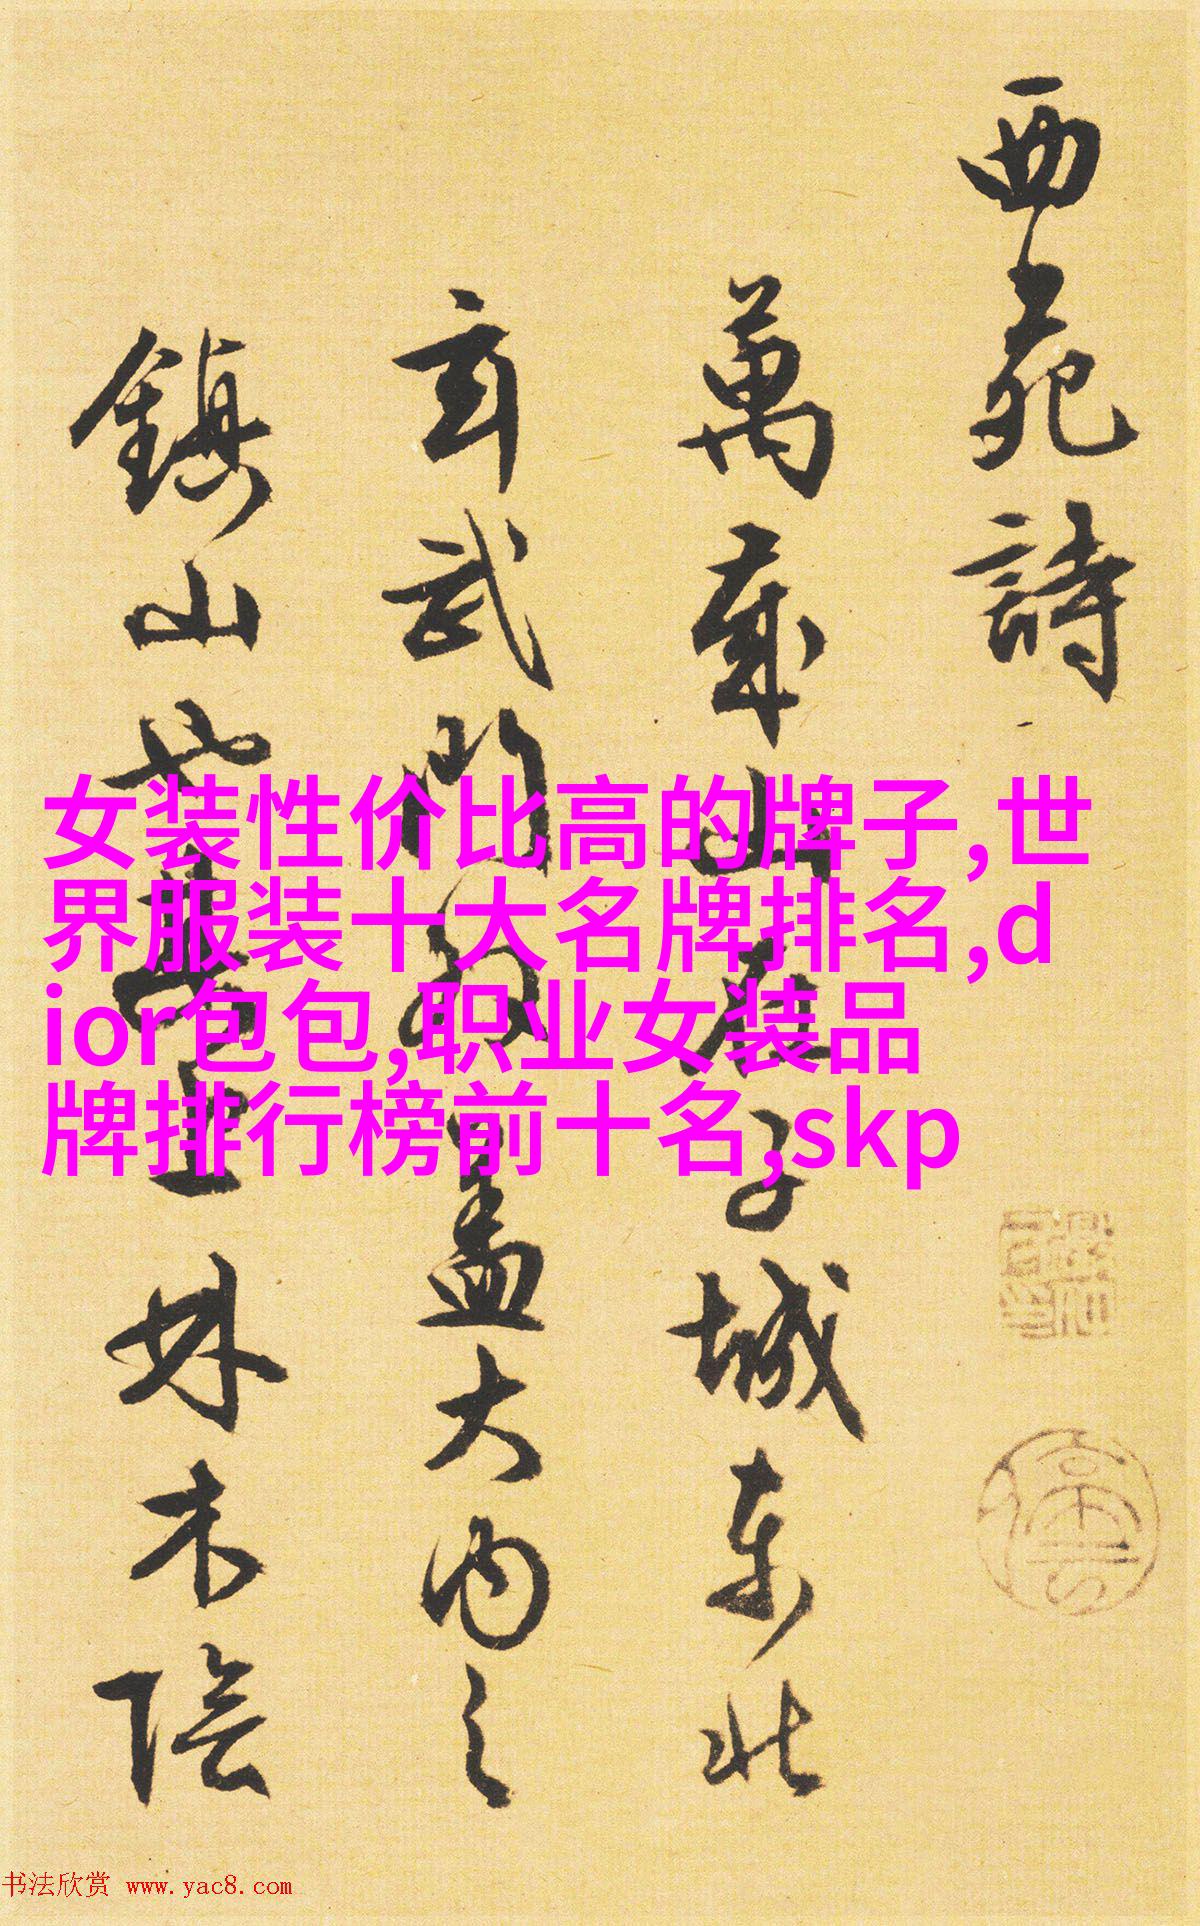 西苑詩
萬歲山在子城東北
玄武門外蓋大内之
鎮山也其上林木陰
女装性价比高的牌子,世
界服装十大名牌排名,d
ior包包,职业女装品
牌排行榜前十名,skp
书法欣赏 www.yac8.com